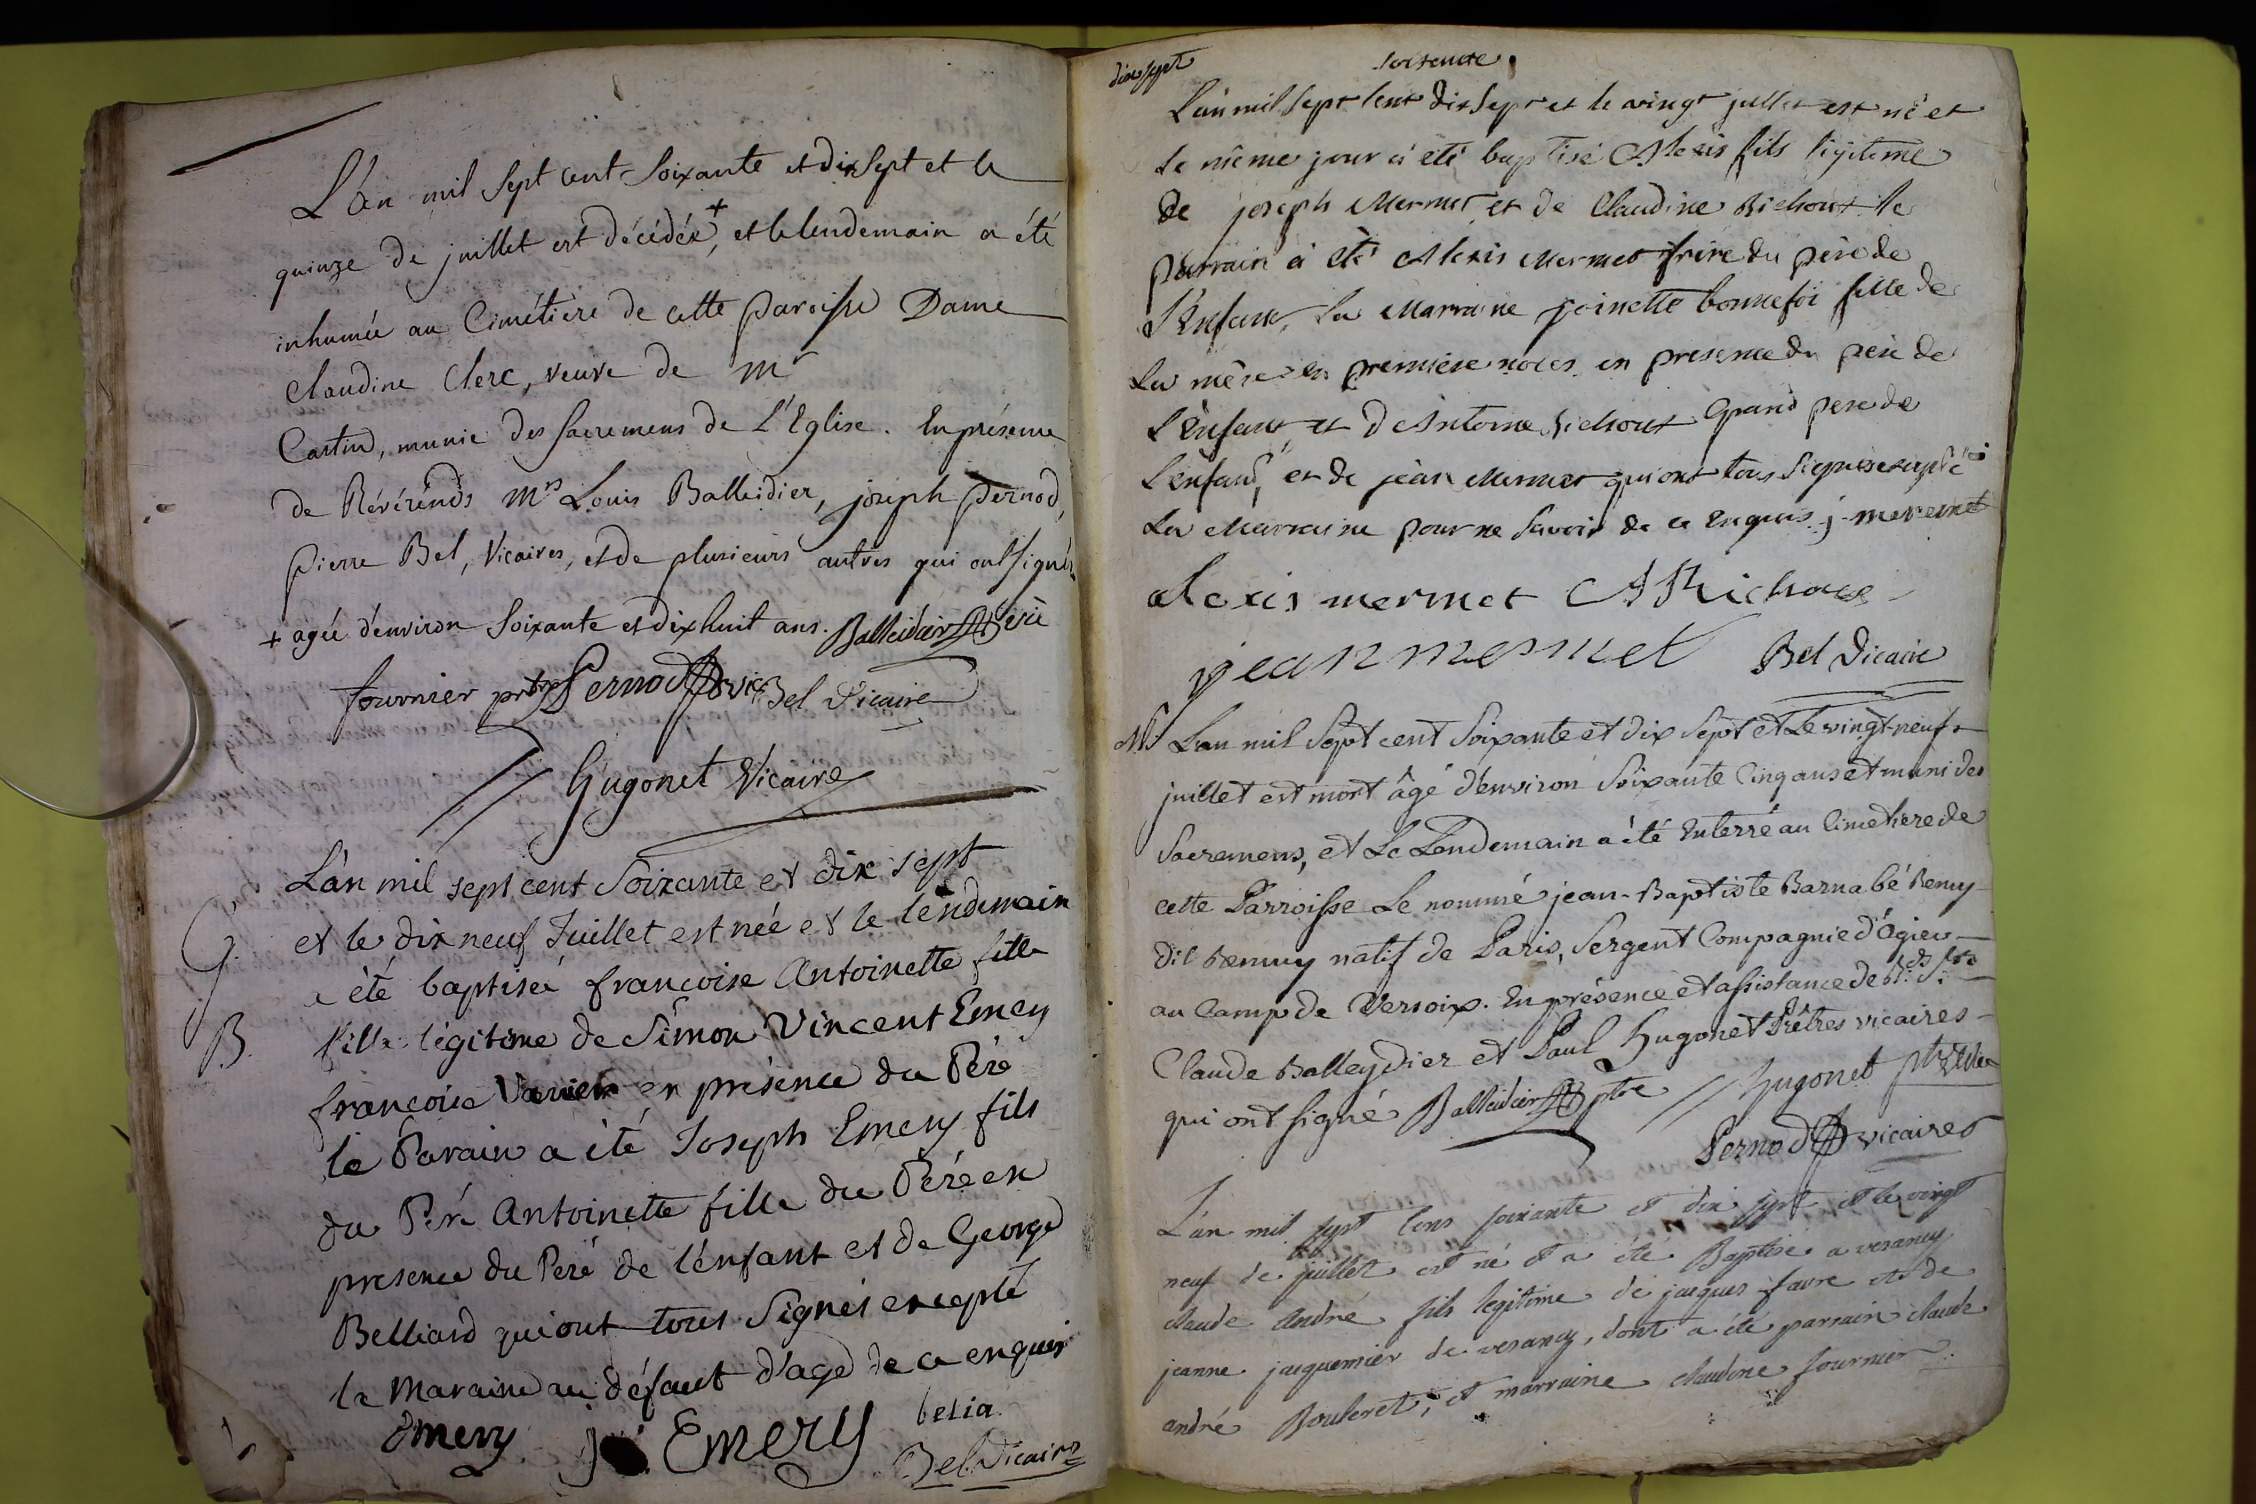 L'an mil Sept cent Soixante et dix Sept et le
quinze de juillet est décédée +, et le lendemain a été
inhumée au Cimétiere de cette paroisse Dame
Claudine Clerc, veuve de Mr
Castin, munie des sacremens de L'Eglise. En présence
de Révérends Mrs Louis Balleidier, joseph Pernod,
pierre Bel, Vicaires, et de plusieurs autres qui ont signés
+ agée d'environ Soixante et dix huit ans. Balleidier vic
fournier ptre Pernod vic Bel Vicaire
Hugonet Vicaire
L'an mil sept cent Soixante et dix sept
et le dix neuf Juillet est née et le lendemain
G.
a été baptiseé francoise Antoinette fille
B.
fille légitime de Simon Vincent Emery
francoise en présence du Péré
le Parain a été Joseph Emery fils
du Péré Antoinette fille du Péré en
presence du Peré de l'énfant et de George
Belliard qui ont tous Signés excepté
la Maraine au défaut d'age de ce enquis
Emery J. Emery belia
Bel Vicaire
dix sept soixante
L'an mil Sept Cent dix Sept et le vingt jullet est né et
le même jour a été baptisé Alexis fils légitime
de joseph Mermet et de Claudine Richoux le
parrain a été Alexis Mermet frère du père de
l'Enfant, La Marraine joinette bonnefoi fille de
La mère en première noces en presence du père de
L'Enfant et d'Antoine Richoux Grand pere de
L'enfant, et de jean Mermet qui ont tous Signés excepté
La Marraine pour ne Savoir de ce Enquis. j. mermet
alexis mermet A Richoux
jean mermet Bel Vicaire
L'an mil Sept cent Soixante et dix Sept et Le vingt-neuf
juillet est mort âgé d'énviron Soixante Cinq ans et muni des
Sacremens, et Le Lendemain a été Enterré au Cimetiere de
cette Parroisse Le nommé jean-Baptiste Barnabé Remy
dit Remuy natif de Paris, Sergent Compagnie d'Ogieu
au Camp de Versoix. En présence et assistance de Rds Srs
Claude Balleydier et Paul Hugonet Prêtres vicaires
qui ont signé Balleidier ptre Hugonet ptre
Pernod vicaires
L'an mil sept cens soixante et dix sept et le vingt
neuf de juillet est né et a été Baptisé a vesancy
claude André fils legitime de jacques favre et de
jeanne jacquemier de vesancy, dont a été parrain claude
andré Bouleret, et marraine claudine fournier